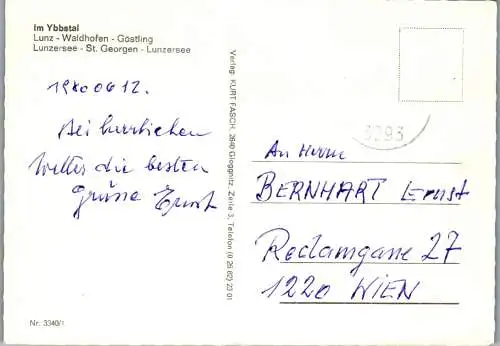 Im Ybbstal
Lunz - Waldhofen - Göstling
Lunzersee - St. Georgen - Lunzersee
19800612.
Bei herrlichem
Wetter die besten
Grüsse Ernst
Nr. 3340/1
Verlag: KURT FASCH, 2640 Gloggnitz, Zeile 3, Telefon (0 26 62) 23 01
3293
An Herrn
BERNHART Ernst
Reclamgasse 27
1220 WIEN